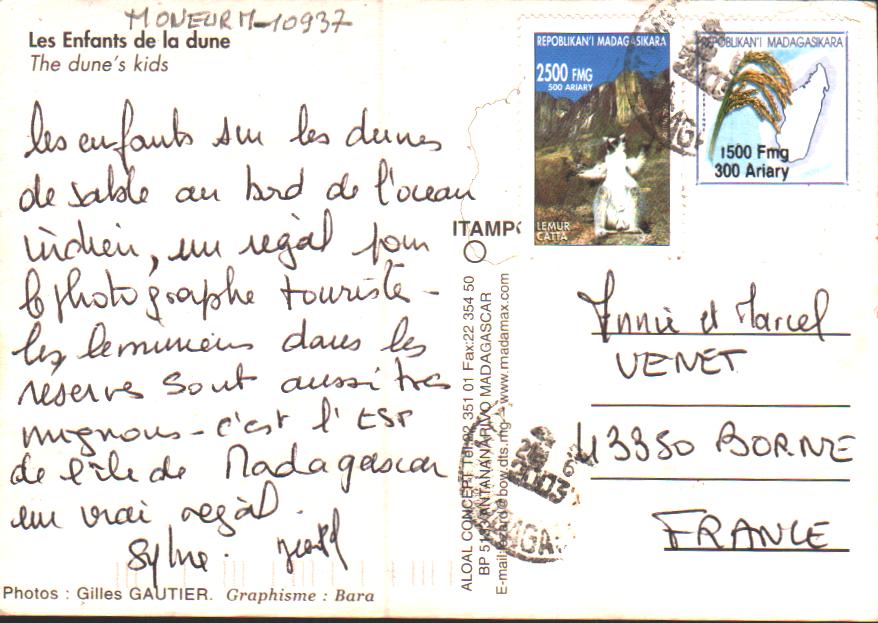 MONEURM-10937
Les Enfants de la dune
The dune's kids
les enfants sur les dunes
de sable au bord de l'ocean
indien, un regàl pour
le photographe touriste -
les lemuriens dans les
reserves sont aussi tres
mignons - c'est l'EST
de l'île de Madagascar
un vrai regàl.
Sylvie.
Photos : Gilles GAUTIER. Graphisme : Bara
REPOBLIKAN'I MADAGASIKARA
2500 FMG
500 ARIARY
LEMUR
CATTA
REPOBLIKAN'I MADAGASIKARA
1500 Fmg
300 Ariary
ALOAL CONCEPT Tel:22 351 01 Fax:22 354 50
ANTANANARIVO MADAGASCAR
www.madamax.com
2003
Annie et Marcel
VENET
43350 BORNE
FRANCE